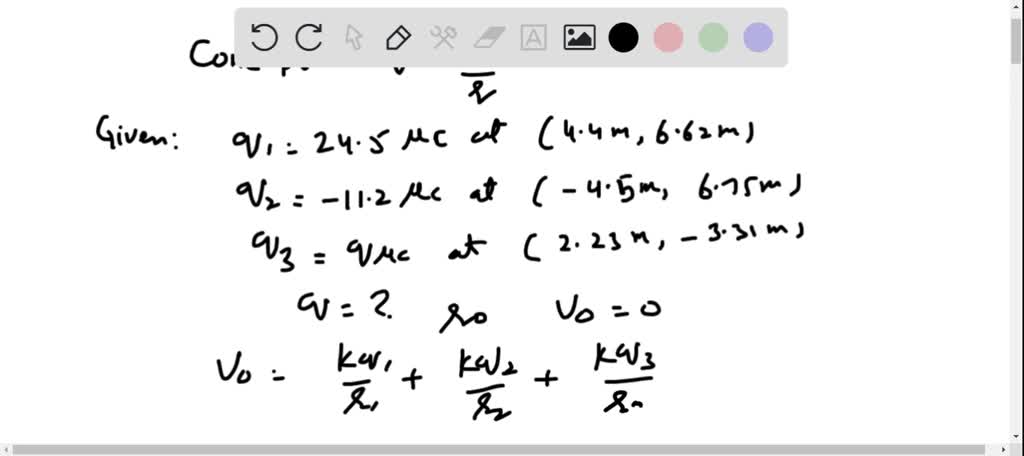 Given: q₁ = 24.5 μc at (4.4m, 6.62m)
q₂ = -11.2 μc at (-4.5m, 6.75m)
q₃ = qμc at (2.23m, -3.31m)
q = ? so V₀ = 0
V₀ = kq₁/r₁ + kq₂/r₂ + kq₃/r